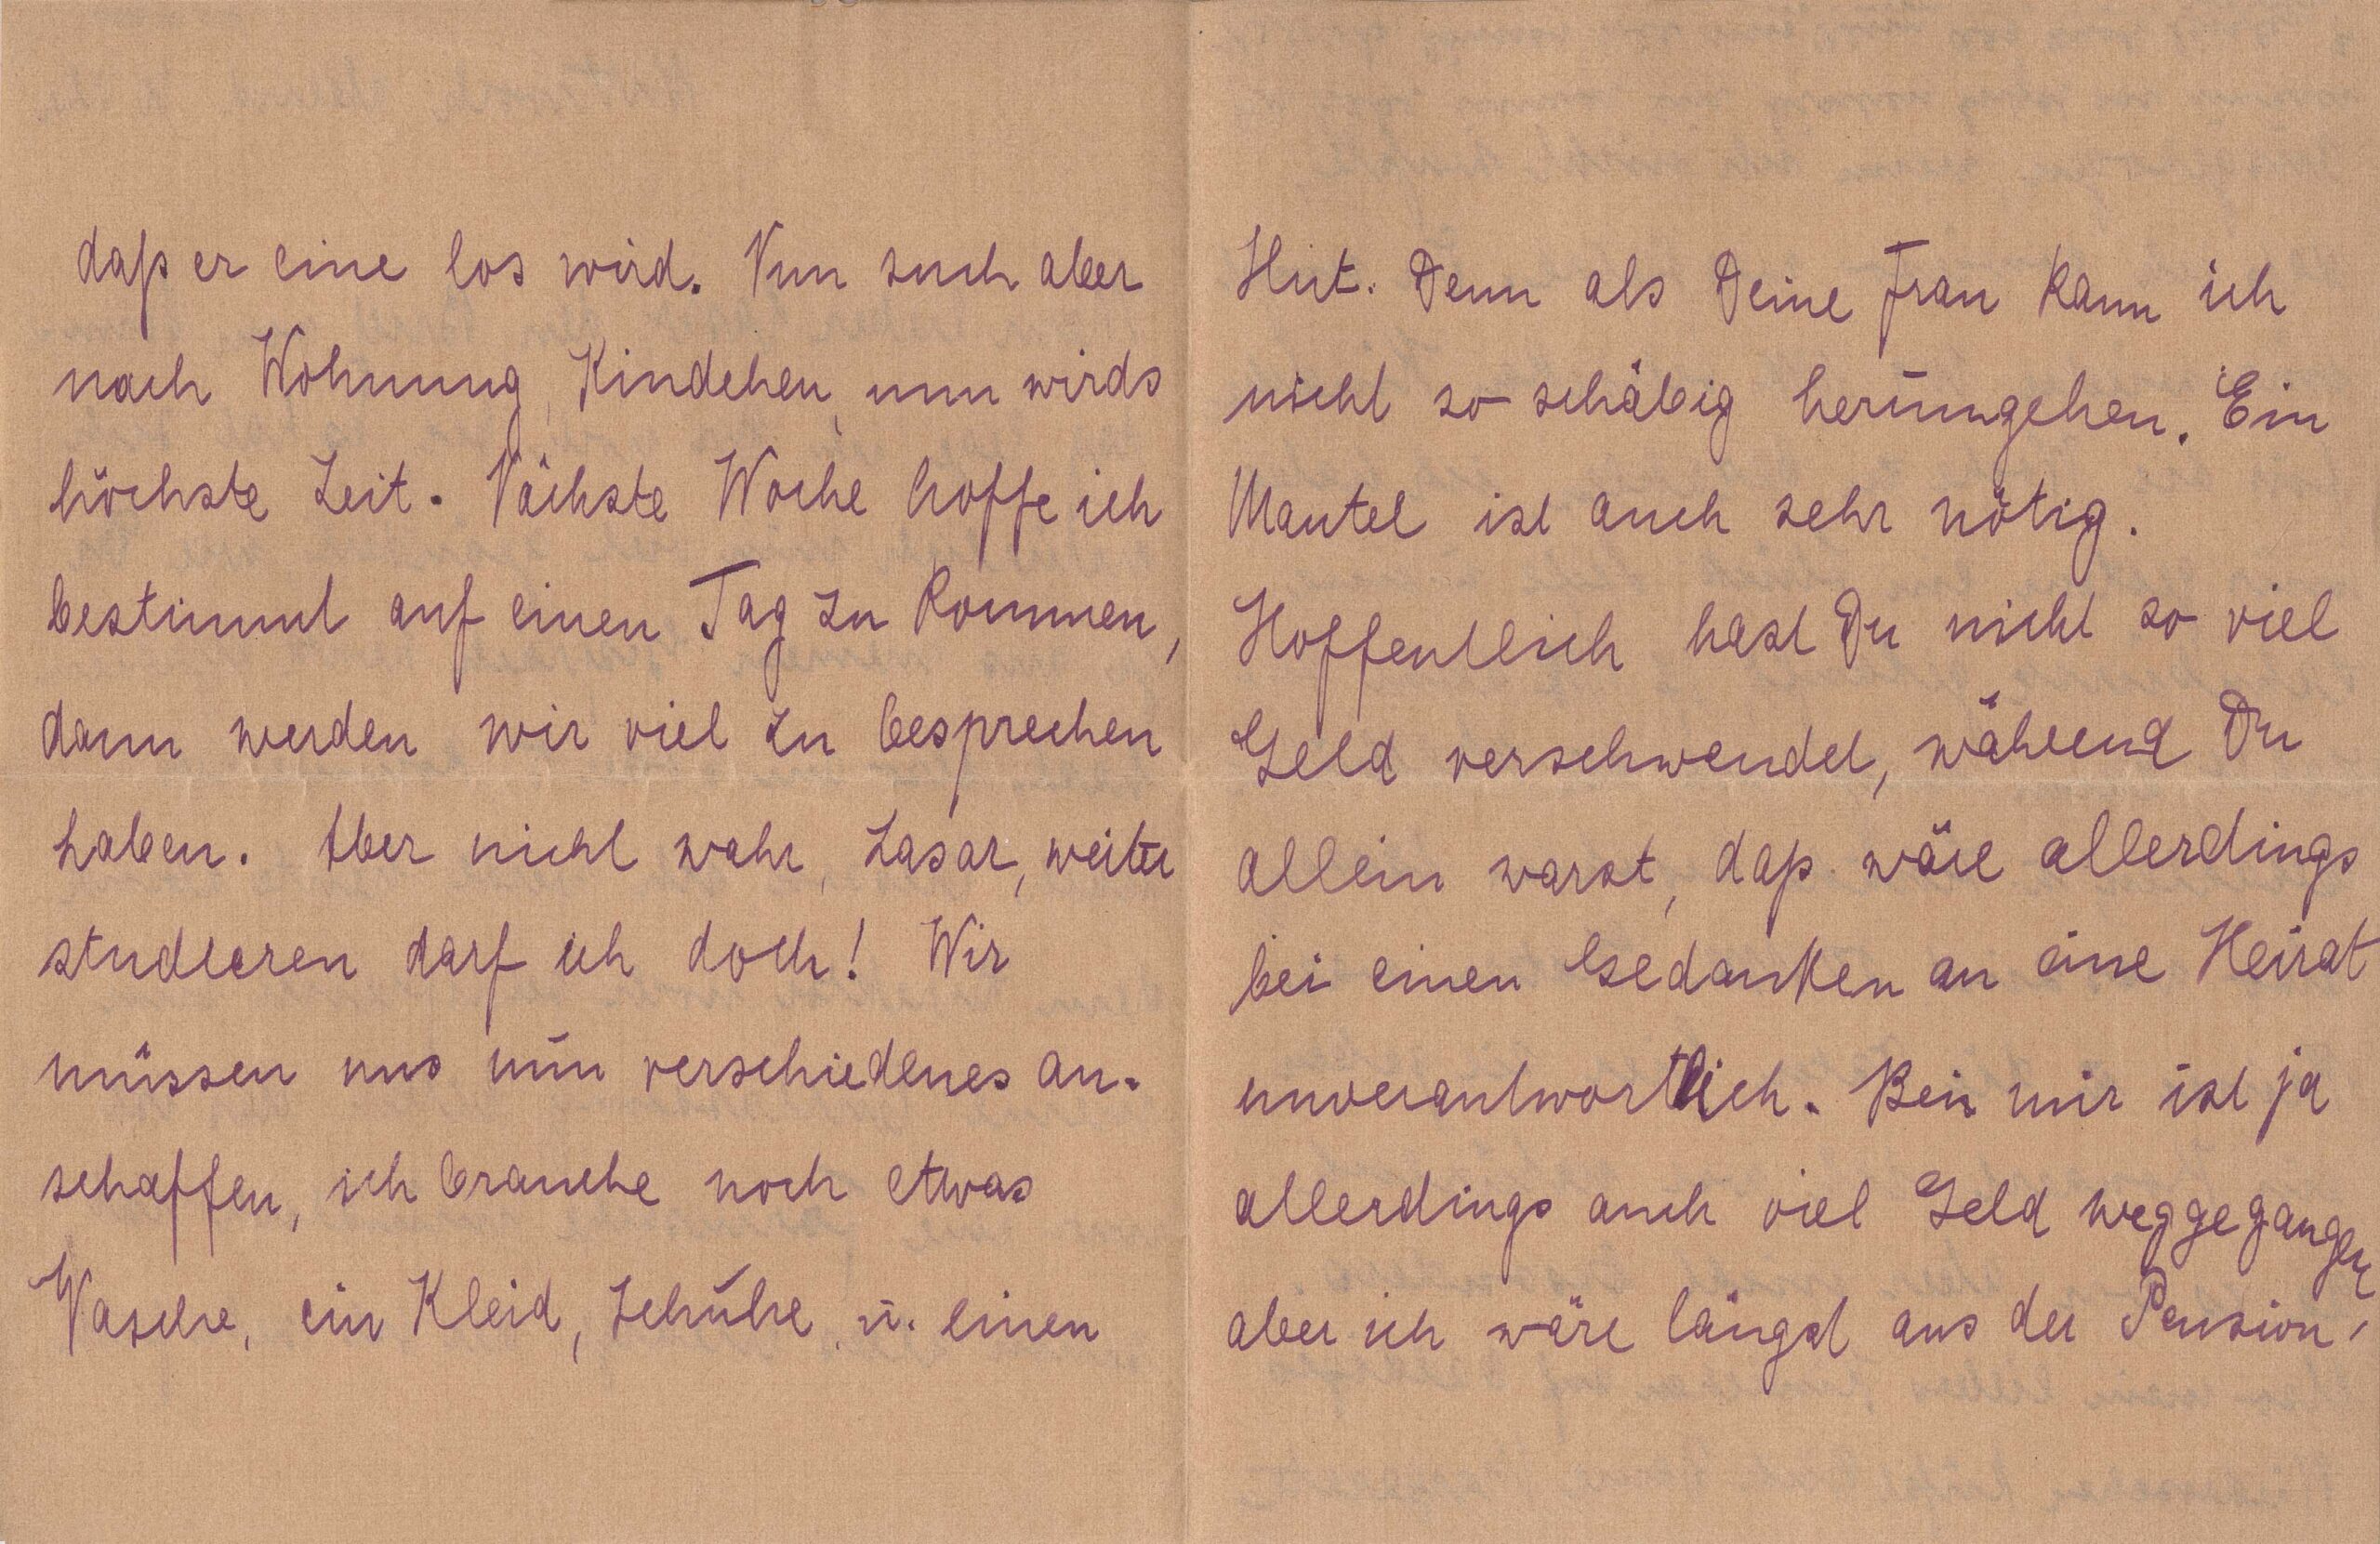 daß er eine los wird. Nun such aber
nach Wohnung, Kindchen, nun wirds
höchste Zeit. Nächste Woche hoffe ich
bestimmt auf einen Tag zu kommen,
dann werden wir viel zu besprechen
haben. Aber nicht wahr, Lasar, weiter
studieren darf ich doch! Wir
müssen uns nun verschiedenes an-
schaffen, ich brauche noch etwas
Wäsche, ein Kleid, Schuhe, u. einen
Hut. Denn als Deine Frau kann ich
nicht so schäbig herumgehen. Ein
Mantel ist auch sehr nötig.
Hoffentlich hast Du nicht so viel
Geld verschwendet, während Du
allein warst, daß wäre allerdings
bei einen Gedanken an eine Heirat
unverantwortlich. Bei mir ist ja
allerdings auch viel Geld weggegangen
aber ich wäre längst aus der Pension,